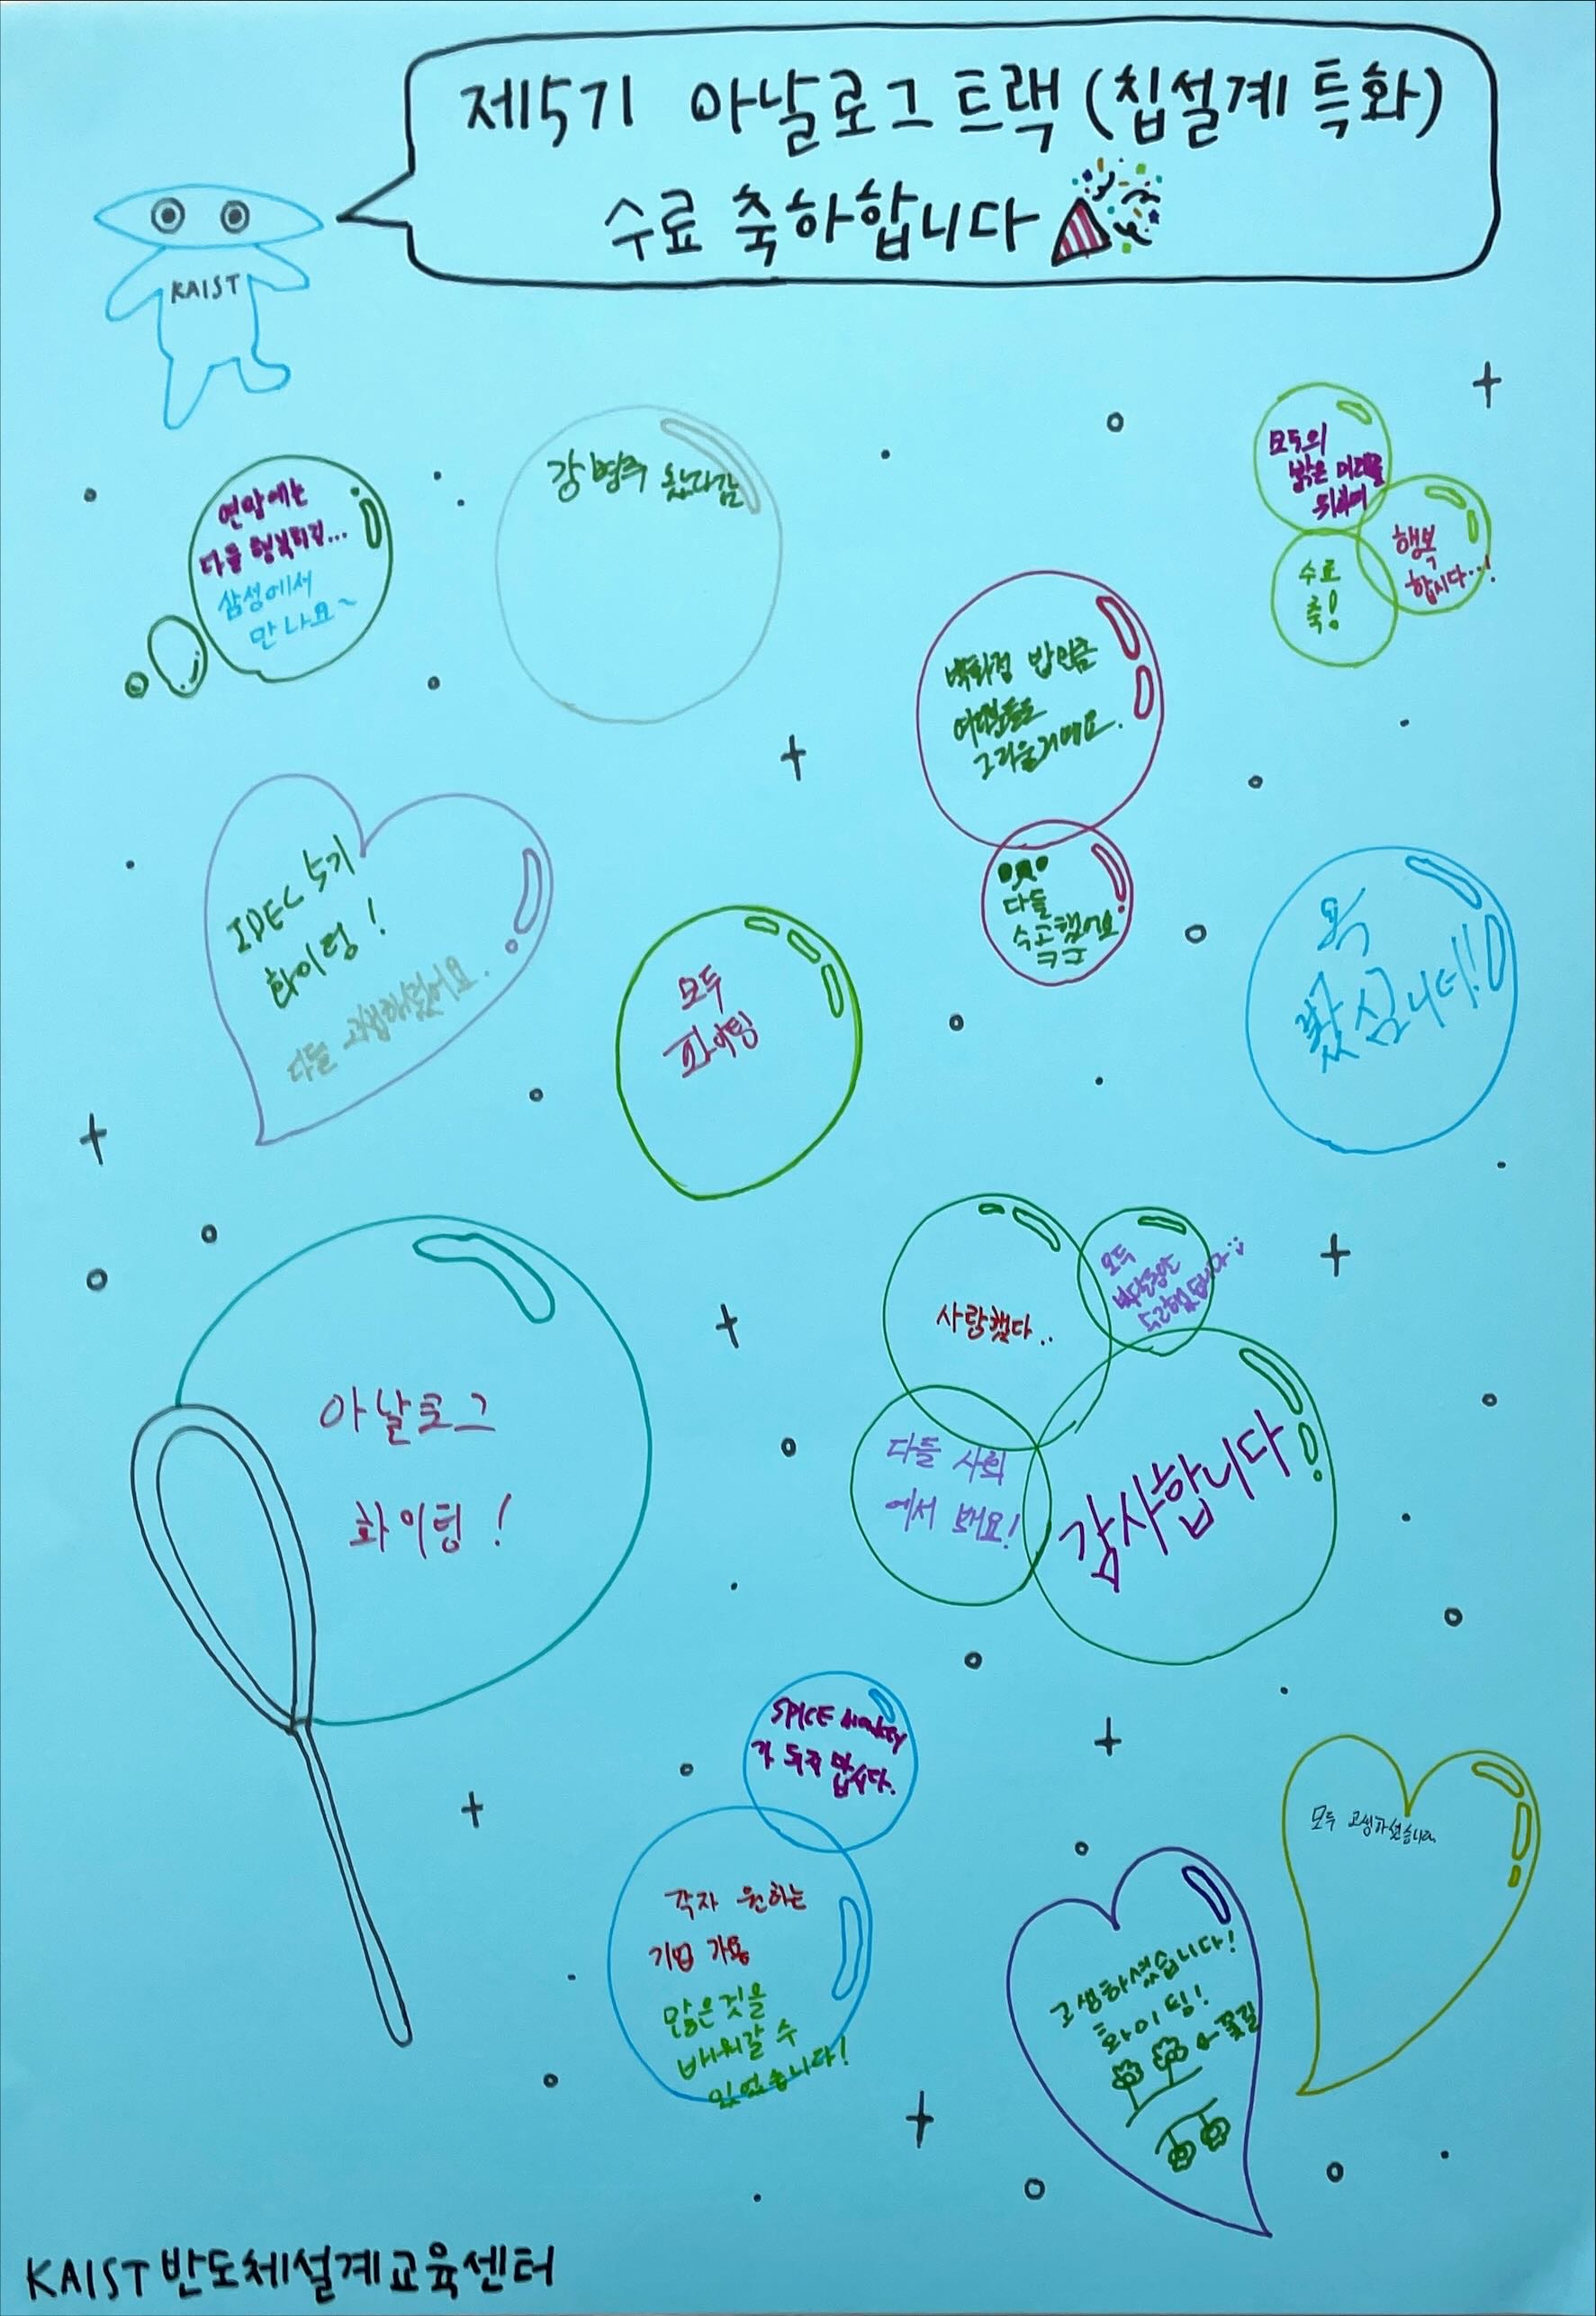 제5기 아날로그 트랙 (칩설계 특화)
수료 축하합니다
KAIST
연말에는
다들 행복하길...
삼성에서
만나요~
강병주 왔다감
모두의
밝은 미래를
위하여
행복
합시다...!
수료
축!
백화점 밥만큼
여러분들도
그리울거예요.
다들
수고했어요
IDEC 5기
화이팅!
다들 고생하셨어요.
모두
파이팅
욕
봤심니더!!
아날로그
화이팅!
사랑했다..
모두
수고했습니다
다들 사회
에서 봬요!
감사합니다
SPICE monkey
가 되지 맙시다.
각자 원하는
기업 가용
많은것을
배워갈 수
있었습니다!
모두 고생하셨습니다
고생하셨습니다!
화이팅!
꽃길
KAIST 반도체설계교육센터